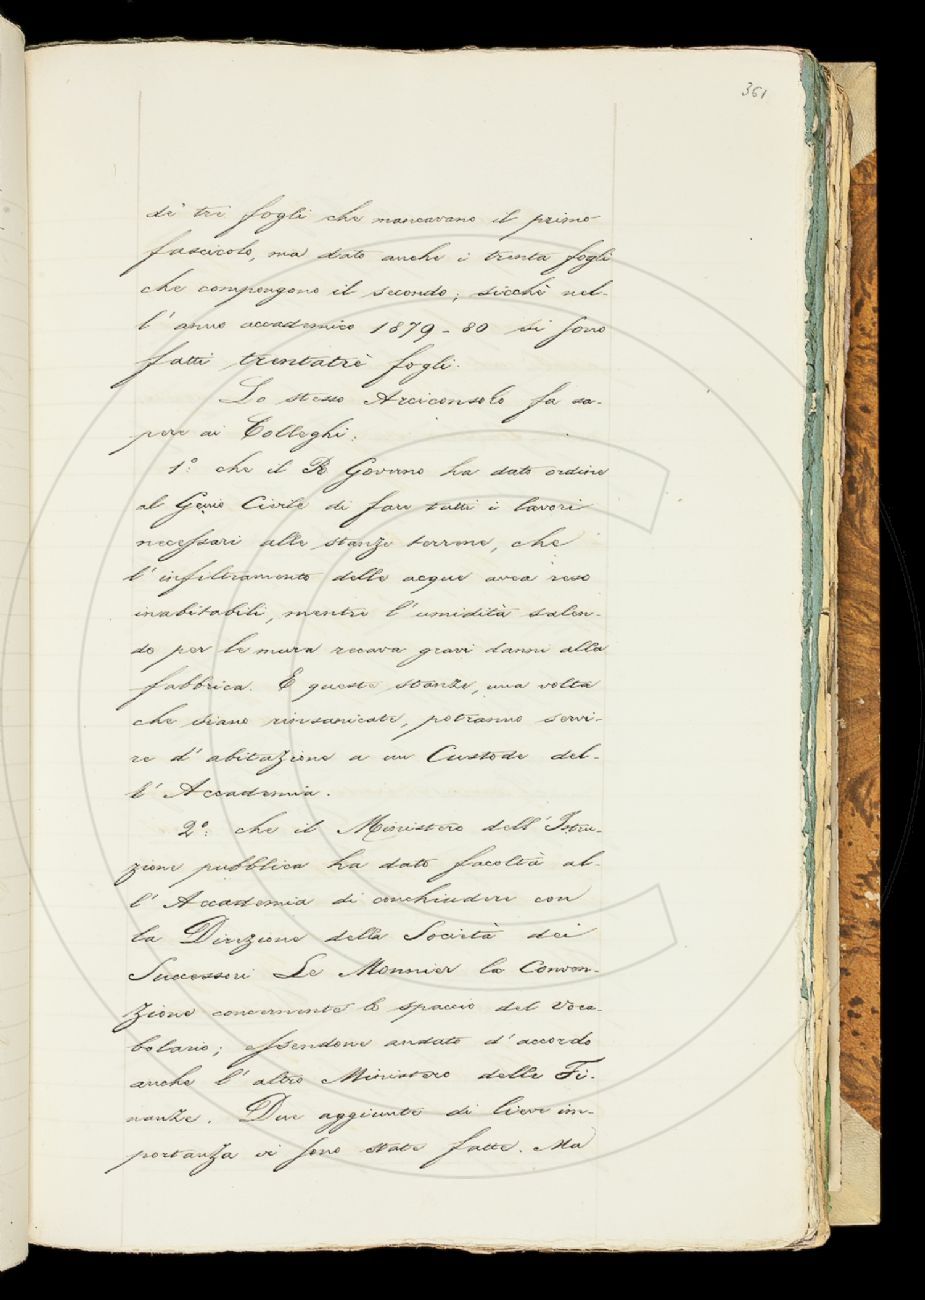 361
di tre fogli che mancavano il primo
fascicolo, ma dato anche i trenta fogli
che compongono il secondo; sicchè nel-
l' anno accademico 1879-80 si sono
fatti trentatrè fogli.
Lo stesso Arciconsolo fa sa-
pere ai Colleghi:
1º: che il R. Governo ha dato ordine
al Genio Civile di fare tutti i lavori
necessari alle stanze terrene, che
l' infiltramento delle acque avea reso
inabitabili, mentre l' umidità salen-
do per le mura recava gravi danni alla
fabbrica. E queste stanze, una volta
che siano rinsanicate, potranno servi-
re d' abitazione a un Custode del-
l' Accademia.
2º: che il Ministero dell' Istru-
zione pubblica ha dato facoltà al-
l' Accademia di conchiudere con
la Direzione della Società dei
Successori Le Monnier la Conven-
zione concernente lo spaccio del Voca-
bolario; essendone andato d' accordo
anche l' altro Ministero delle Fi-
nanze. Due aggiunte di lieve im-
portanza vi sono state fatte. Ma